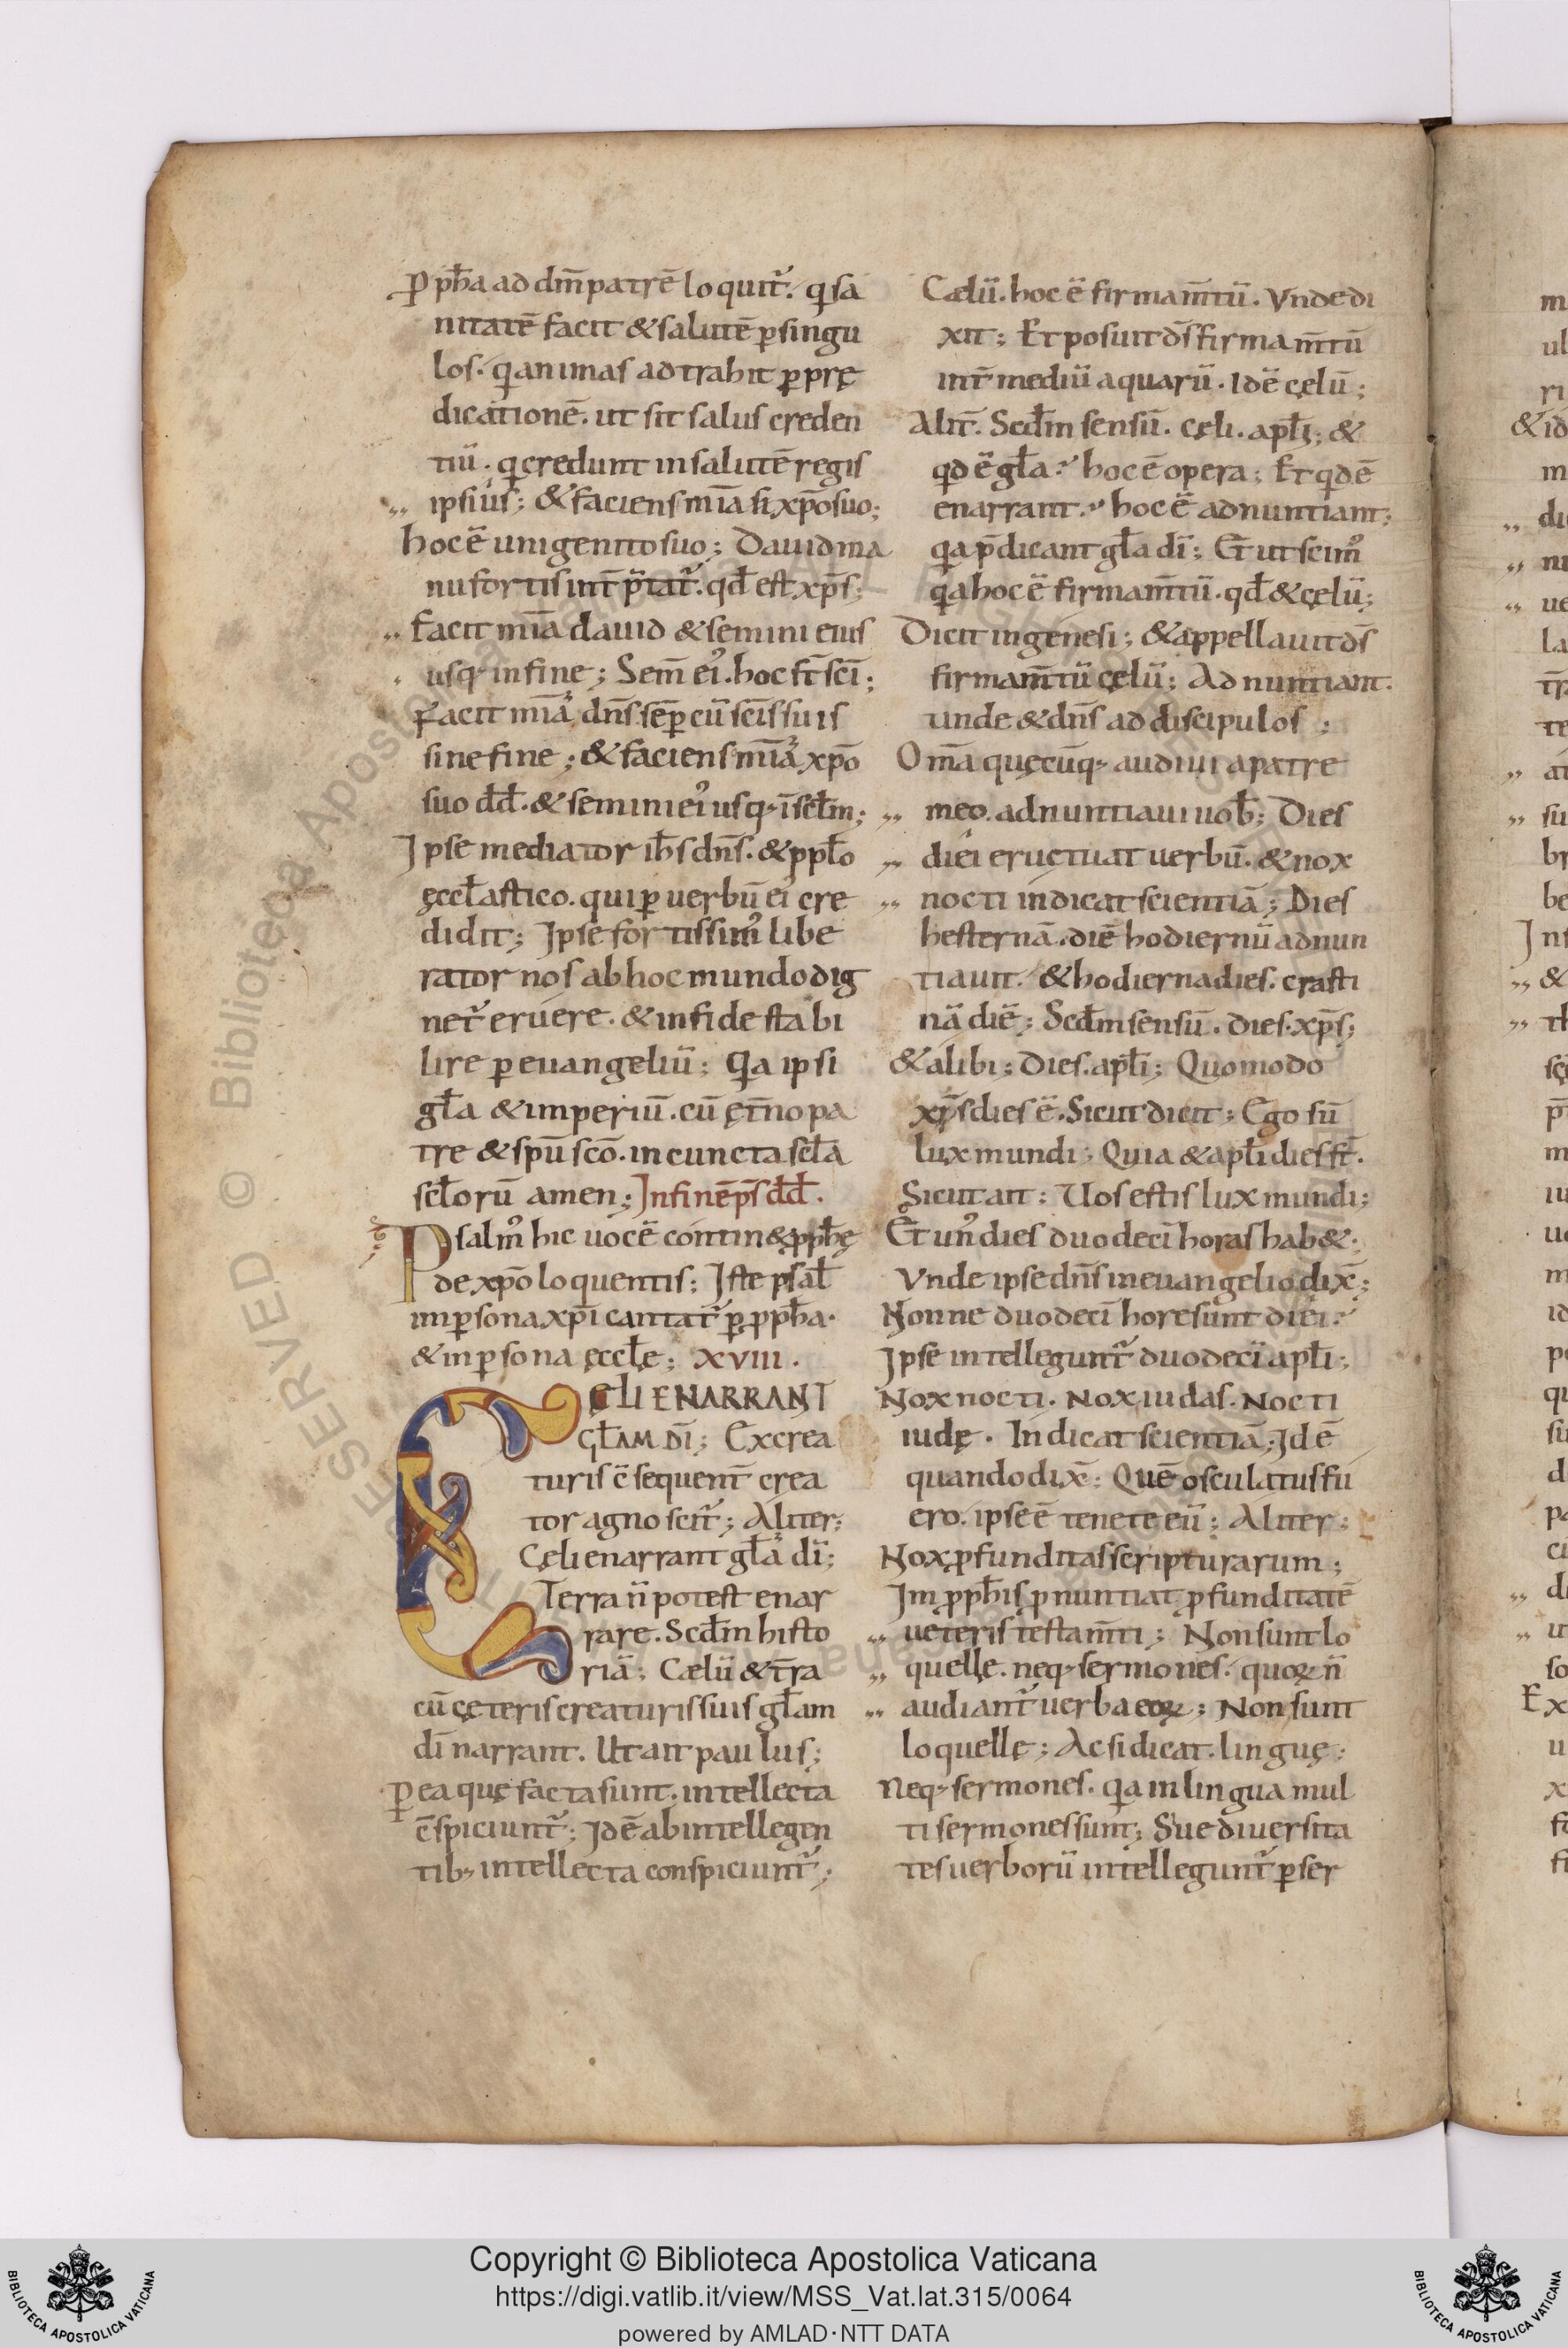 Ppħa ad dm̄ patrē loquit̄. qi sa
nitatē facit & salutē ꝑ singu
los. qi animas ad trahit ꝑ prę
dicationē. ut sit salus creden
tiū. qi credunt in salutē regis
ipsius; & faciens mīa si xp̄o suo;
hoc ē unigenito suo; Dauid ma
nu fortis int̄ p̄tat̄. qđ est xp̄s;
facit mīa dauid & semini eius
usq; in fine; Sem̄ ei᾽. hoc st̄ scī;
Facit mīa dn̄s sēꝑ cū scīs suis
sine fine; & faciens mīa xp̄o
suo dđ. & semini ei᾽ usq; ī sct̄m;
Ipse mediator ih̄s dn̄s. & ppło
ęccłastico. qui ꝑ uerbū ei᾽ cre
didit; Ipse fortissim᾽ libe
rator nos ab hoc mundo dig
net̄ eruere. & in fide stabi
lire ꝑ euangeliū; Qa ipsi
gła & imperiū. cū ęt̄no pa
tre & spū scō. in cuncta scła
scłorū amen; In finē ps̄ dđ.
Psalm᾽ hic uocē contin& ꝓpħę
de xp̄o loquentis; Iste psał
in ꝑsona xp̄i cantat̄ ꝑ ꝓpħa.
& in ꝑsona ęccłę; XVIII.
CĘLI ENARRANT
GŁAM DĪ; Ex crea
turis c̄sequent̄ crea
tor agnoscit̄; Aliter;
Cęli enarrant głā dī;
Terra n̄ potest enar
rare. Scđm histo
riā; Cælū & t̄ra
cū çeteris creaturis suis głam
dī narrant. Ut ait paulus;
ꝑ ea quę facta sunt. intellecta
c̄spiciunt̄; Id ē ab intellegen
tib; intellecta conspiciunt̄;
Cælū. hoc ē firmam̄tū. Vnde di
xit; Et posuit d̄s firmam̄tū
int̄ mediū aquarū. Id ē çęlū;
Alit̄. Scđm sensū. cęli. apłi; &
qđ ē gła? hoc ē opera; Et qđ ē
enarrant? hoc ē adnuntiant;
qa p̄dicant gła dī; Et ut scim᾽
qa hoc ē firmam̄tū. qđ & cęlū;
Dicit in genesi; & appellauit d̄s
firmam̄tū cęlū; Adnuntiant.
unde & dn̄s ad discipulos;
Om̄a quęcūq; audiui a patre
meo. adnuntiaui uoƀ; Dies
diei eructuat uerbū. & nox
nocti indicat scientiā; Dies
hesternā. diē hodiernū adnun
tiauit. & hodierna dies. crasti
nā diē; Scđm sensū. dies. xp̄s;
& alibi; Dies. apłi; Quomodo
xp̄s dies ē. Sicut dicit; Ego sū
lux mundi; Quia & apłi dies st̄.
Sicut ait; Uos estis lux mundi;
Et un᾽ dies duodecī horas hab&;
Vnde ipse dn̄s in euangelio dix̄;
Nonne duodecī hore sunt diei?
Ipse intellegunt̄ duodecī apłi;
Nox nocti. Nox iudas. Nocti
iudę. Indicat scientiā; Id ē
quando dix̄; Quē osculatus fu
ero. ipse ē tenete eū; Aliter;
Nox ꝓfunditas scripturarum;
Im ꝓpħis ꝓnuntiat ꝓfunditatē
ueteris testam̄ti; Non sunt lo
quelle. neq; sermones. quoꝝ n̄
audiant̄ uerba eoꝝ; Non sunt
loquellę; Ac si dicat. linguę;
Neq; sermones. qa in lingua mul
ti sermones sunt; Sue diuersita
tes uerborū intellegunt̄ ꝑ ser
Copyright © Biblioteca Apostolica Vaticana
https://digi.vatlib.it/view/MSS_Vat.lat.315/0064
powered by AMLAD·NTT DATA
BIBLIOTECA APOSTOLICA VATICANA
BIBLIOTECA APOSTOLICA VATICANA